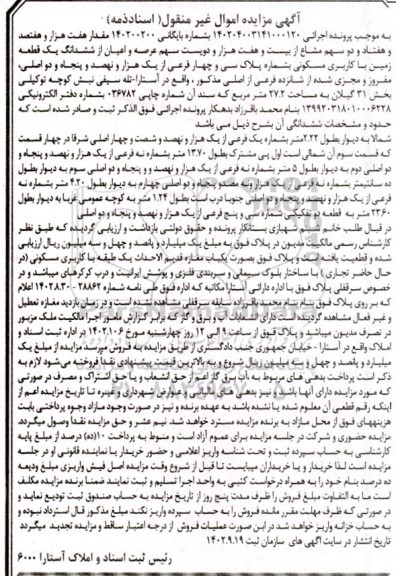 آگهی مزایده اموال غیر منقول( اسنادذمه)
به موجب پرونده اجرائی ۱۴۰۲۰۴۰۰۳۱۴۱۰۰۰۱۲۰ بشماره بایگانی ۱۴۰۲۰۰۲۰۰ مقدار هفت هزار و هفتصد
و هفتاد و دو سهم مشاع از بیست و هفت هزار و دویست سهم عرصه و اعیان از ششدانگ یک قطعه
زمین با کاربری مسکونی بشماره پلاک سی و چهار فرعی از یک هزار و نهصد و پنجاه و دو اصلی،
مفروز و مجزی شده از شانزده فرعی از اصلی مذکور ، واقع در آستارا-تله سیفی نبش کوچه توکیلی
بخش ۳۱ گیلان به مساحت ۲۷.۲ متر مربع که سند آن شماره چاپی ۰۳۶۷۸۲ شماره دفتر الکترونیکی
۱۳۹۹۲۰۳۱۸۰۱۰۰۰۶۲۲۸ بنام محمد باقرزاد بدهکار پرونده اجرائی فوق الذکر ثبت و صادر شده است که
حدود و مشخصات ششدانگی آن بشرح ذیل می باشد
شمالا به دیوار بطول ۲.۲۲متر بشماره یک فرعی از یک هزار و نهصد و شصت و چهار اصلی شرقا در چهار قسمت
که قسمت سوم آن شمالی است اول پی مشترک بطول ۱۳.۷۰ متر بشماره نه فرعی از یک هزار و نهصد و پنجاه و
دو اصلی دوم به دیوار بطول ۵ متر بشماره نه فرعی از یک هزار و نهصد و پنجاه و دو اصلی سوم به دیوار بطول
ده سانتیمتر بشماره نه فرعی از یک هزار و نه صدو پنجاه و دو اصلی چهارم به دیوار بطول ۴.۲۰ متر بشماره نه
فرعی از یک هزار و نهصد و پنجاه و دو اصلی جنوبا درب است بطول ۱.۲۴ متر به کوچه عمومی غربا به دیوار بطول
۲۳.۶۰ متر به قطعه دو تفکیکی شماره سی و پنج فرعی از یک هزار و نهصد و پنجاه و دو اصلی
در قبال طلب خانم شهبازی بستانکار پرونده و حقوق دولتی بازداشت و ارزیابی گردیده که طبق نظر
کارشناس رسمی مالکیت مدیون در پلاک فوق به مبلغ یک میلیارد و پانصد و چهل و سه میلیون ریال ارزیابی
شده و قطعیت یافته است و پلاک فوق بصورت یکباب مغازه قدیم الاحداث یک طبقه با کاربری مسکونی (در
حال حاضر تجاری ) با ساختار بلوک سیمانی و سربندی فلزی و پوشش ایرانیت و درب کرکره‌ای میباشد و در
خصوص سرقفلی پلاک فوق با اداره دارائی آستارا مکاتبه که اداره فوق طی نامه شماره ۲۸۸۶۲ - ۱۴۰۲.۸.۳۰ اعلام
که بر روی پلاک فوق بنام بنام محمد باقرزاد سابقه سرقفلی مشاهده نشده است و در زمان بازدید مغازه تعطیل
و غیر فعال مشاهده گردیده است دارای انشعاب آب و برق و گاز که برابر گزارش مامور اجرا مالکیت ملک مزبور
در تصرف مدیون میباشد و پلاک فوق از ساعت ۹ الی ۱۲ روز چهارشنبه مورخ ۱۴۰۲.۱۰.۶ در اداره ثبت اسناد و
املاک واقع در آستارا - خیابان جمهوری جنب دادگستری از طریق مزایده به فروش میرسد مزایده از مبلغ یک
میلیارد و پانصد و چهل و سه میلیون ریال شروع و به بالاترین قیمت پیشنهادی نقدا فروخته می‌شود لازم به
ذکر است پرداخت بدهی های مربوط به آب برق گاز اعم از حق انشعاب و یا حق اشتراک و مصرف در صورتی
که مورد مزایده دارای آنها باشد و نیز بدهی های مالیاتی و عوارض شهرداری و غیره تا تاریخ مزایده اعم از
اینکه رقم قطعی آن معلوم شده یا نشده باشد به عهده برنده و نیز در صورت وجود مازاد وجوه پرداختی بابت
هزینه‌های فوق از محل مازاد به برنده مزایده مسترد خواهد شد. نیم عشر و حق مزایده نقدا وصول میگردد.
مزایده حضوری و شرکت در جلسه مزایده برای عموم آزاد است و منوط به پرداخت ۱۰(ده) درصد از مبلغ پایه
کارشناسی به حساب سپرده ثبت و تحت شناسه واریز اعلامی و حضور خریدار یا نماینده قانونی او در جلسه
مزایده است لذا خریدار و یا خریداران میبایست تا قبل از شروع وقت مزایده اصل فیش واریزی مبلغ ودیعه
ده درصد بنام خود را به همراه درخواست کتبی به واحد اجرا تسلیم و ثبت نمایند ضمنا برنده مزایده مکلف
است ما به التفاوت مبلغ فروش را ظرف مدت پنج روز از تاریخ مزایده به حساب صندوق ثبت تودیع نماید و
در صورتی که ظرف مهلت مقرر مانده فروش را به حساب سپرده واریز نکند مبلغ مذکور قابل استرداد نبوده و
به حساب خزانه واریز خواهد شد در این صورت عملیات فروش از درجه اعتبار ساقط و مزایده تجدید میگردد
تاریخ انتشار در سایت آگهی های سازمان ثبت ۱۴۰۲.۹.۱۹
رئیس ثبت اسناد و املاک آستارا ۶۰۰۰